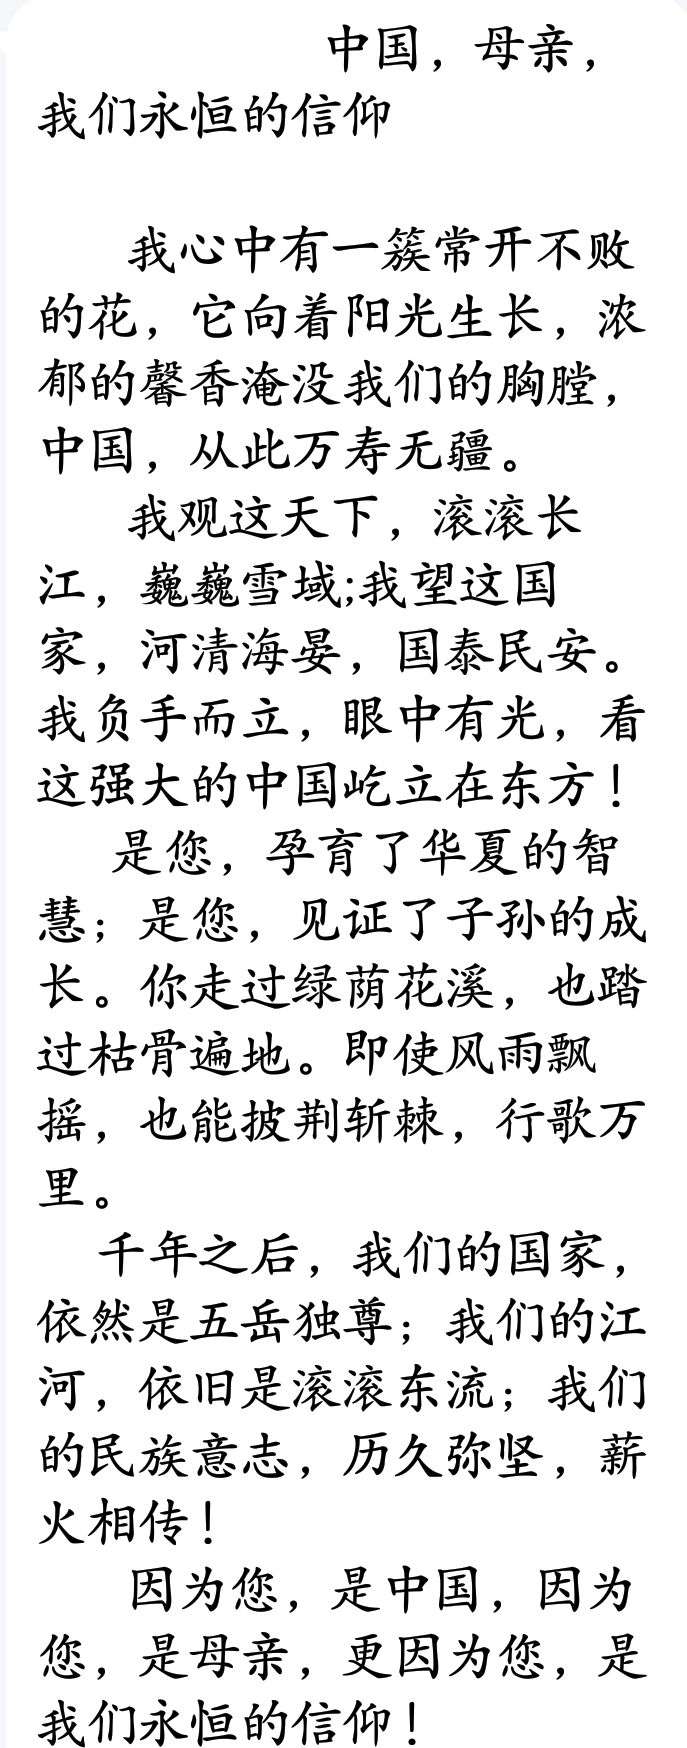 中国，母亲，
我们永恒的信仰
我心中有一簇常开不败
的花，它向着阳光生长，浓
郁的馨香淹没我们的胸膛，
中国，从此万寿无疆。
我观这天下，滚滚长
江，巍巍雪域;我望这国
家，河清海晏，国泰民安。
我负手而立，眼中有光，看
这强大的中国屹立在东方！
是您，孕育了华夏的智
慧；是您，见证了子孙的成
长。你走过绿荫花溪，也踏
过枯骨遍地。即使风雨飘
摇，也能披荆斩棘，行歌万
里。
千年之后，我们的国家，
依然是五岳独尊；我们的江
河，依旧是滚滚东流；我们
的民族意志，历久弥坚，薪
火相传！
因为您，是中国，因为
您，是母亲，更因为您，是
我们永恒的信仰！